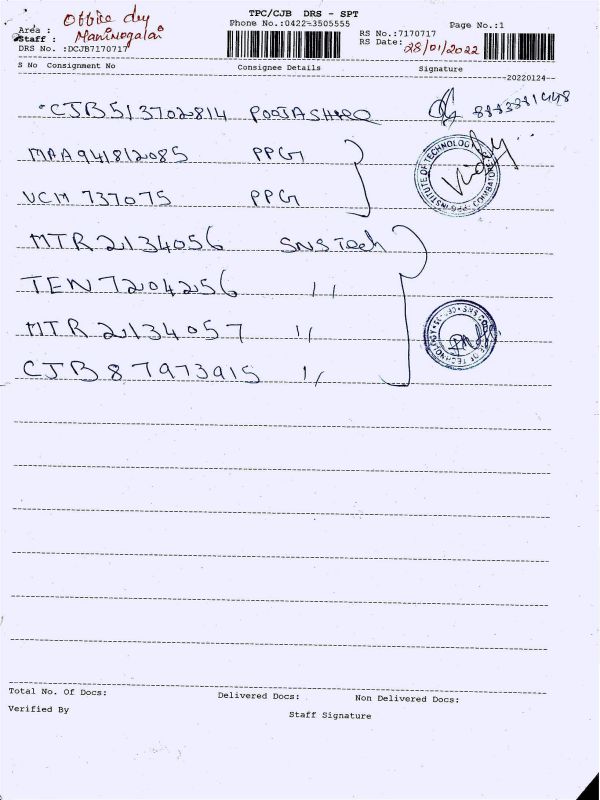 TPC/CJB DRS - SPT
Office dry
Area :
Phone No.:0422-3505555
Page No.:1
Staff : Manimegalai
RS No.:7170717
DRS No. :DCJB7170717
RS Date: 28/01/2022
S No Consignment No Consignee Details Signature
20220124
CJB513702814 POOJASHREE
MAA941812085 PPG
VCM 737075 PPG
MTR2134056 SNS Tech
TEN7204256 "
MTR2134057 "
CJB87973915 "
Total No. Of Docs: Delivered Docs: Non Delivered Docs:
Verified By Staff Signature